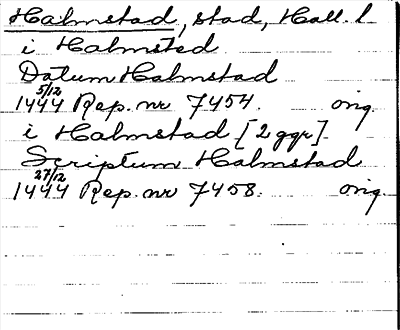 Halmstad, stad, Hall. l.
i Halmsted
Datum Halmstad
5/12
1444 Rep. nr 7454. orig.
i Halmstad [2 ggr].
Scriptum Halmstad
27/12
1444 Rep. nr 7458. orig.